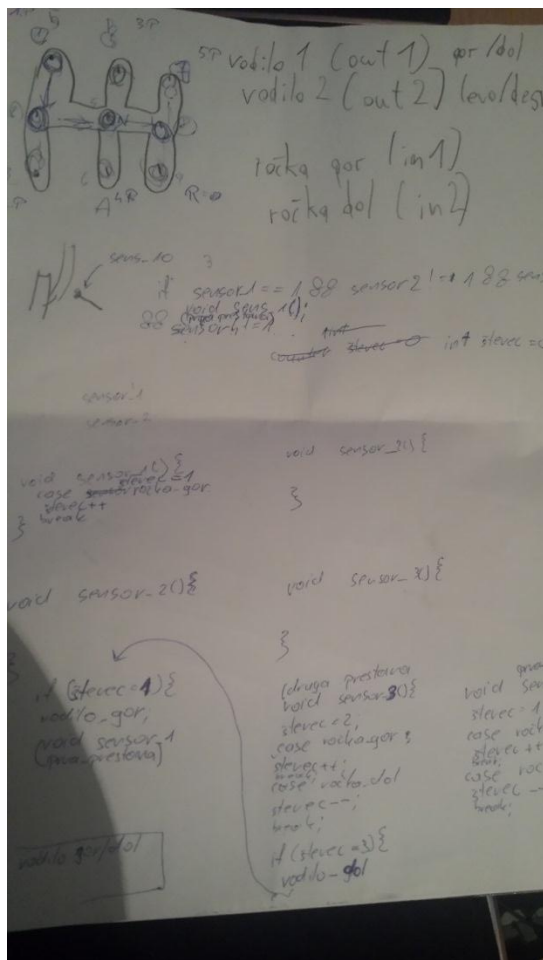 3P
5P
vodilo 1 (out 1) gor/dol
vodilo 2 (out 2) levo/
ročka gor (in1)
ročka dol (in2)
4P R=0
sens_10
if sensor1 == 1 && sensor2 != 1 &&
void sens_1();
&& sensor4 != 1
counter stevec = 0 int stevec =
sensor_1
sensor_2
void sensor_1() {
stevec = 1
case rocka_gor
stevec++
} break
void sensor_2() {
}
void sensor_2() {
}
void sensor_3() {
}
if (stevec = 1) {
vodilo_gor;
void sensor_1
(prva_prestava)
vodilo gor/dol
(druga prestava
void sensor_3() {
stevec = 2;
case rocka_gor;
stevec++;
break;
case rocka_dol
stevec--;
break;
if (stevec = 3) {
vodilo_dol
prva
void sen
stevec = 1
case rock
stevec++
break;
case roc
stevec --
break;